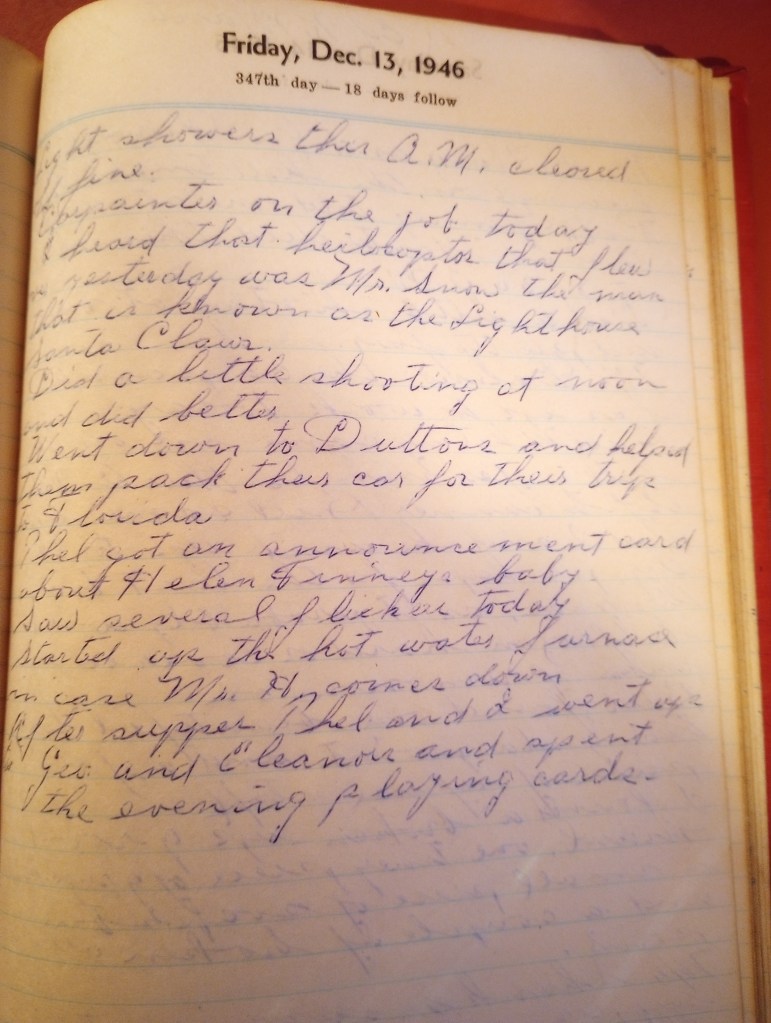 Friday, Dec. 13, 1946
347th day — 18 days follow
Light showers this A.M. cleared
off fine.
painter on the job today
I heard that heilocoptor that flew
yesterday was Mr. Snow the man
that is known as the Lighthouse
Santa Claus.
Did a little shooting at noon
and did better
Went down to Duttons and helped
them pack their car for their trip
to Florida
Phel got an announcement card
about Helen Finneys baby
Saw several flicker today
Started up the hot water furnace
in case Mr. H. comes down
After supper Phel and I went up
to Geo and Eleanors and spent
the evening playing cards.